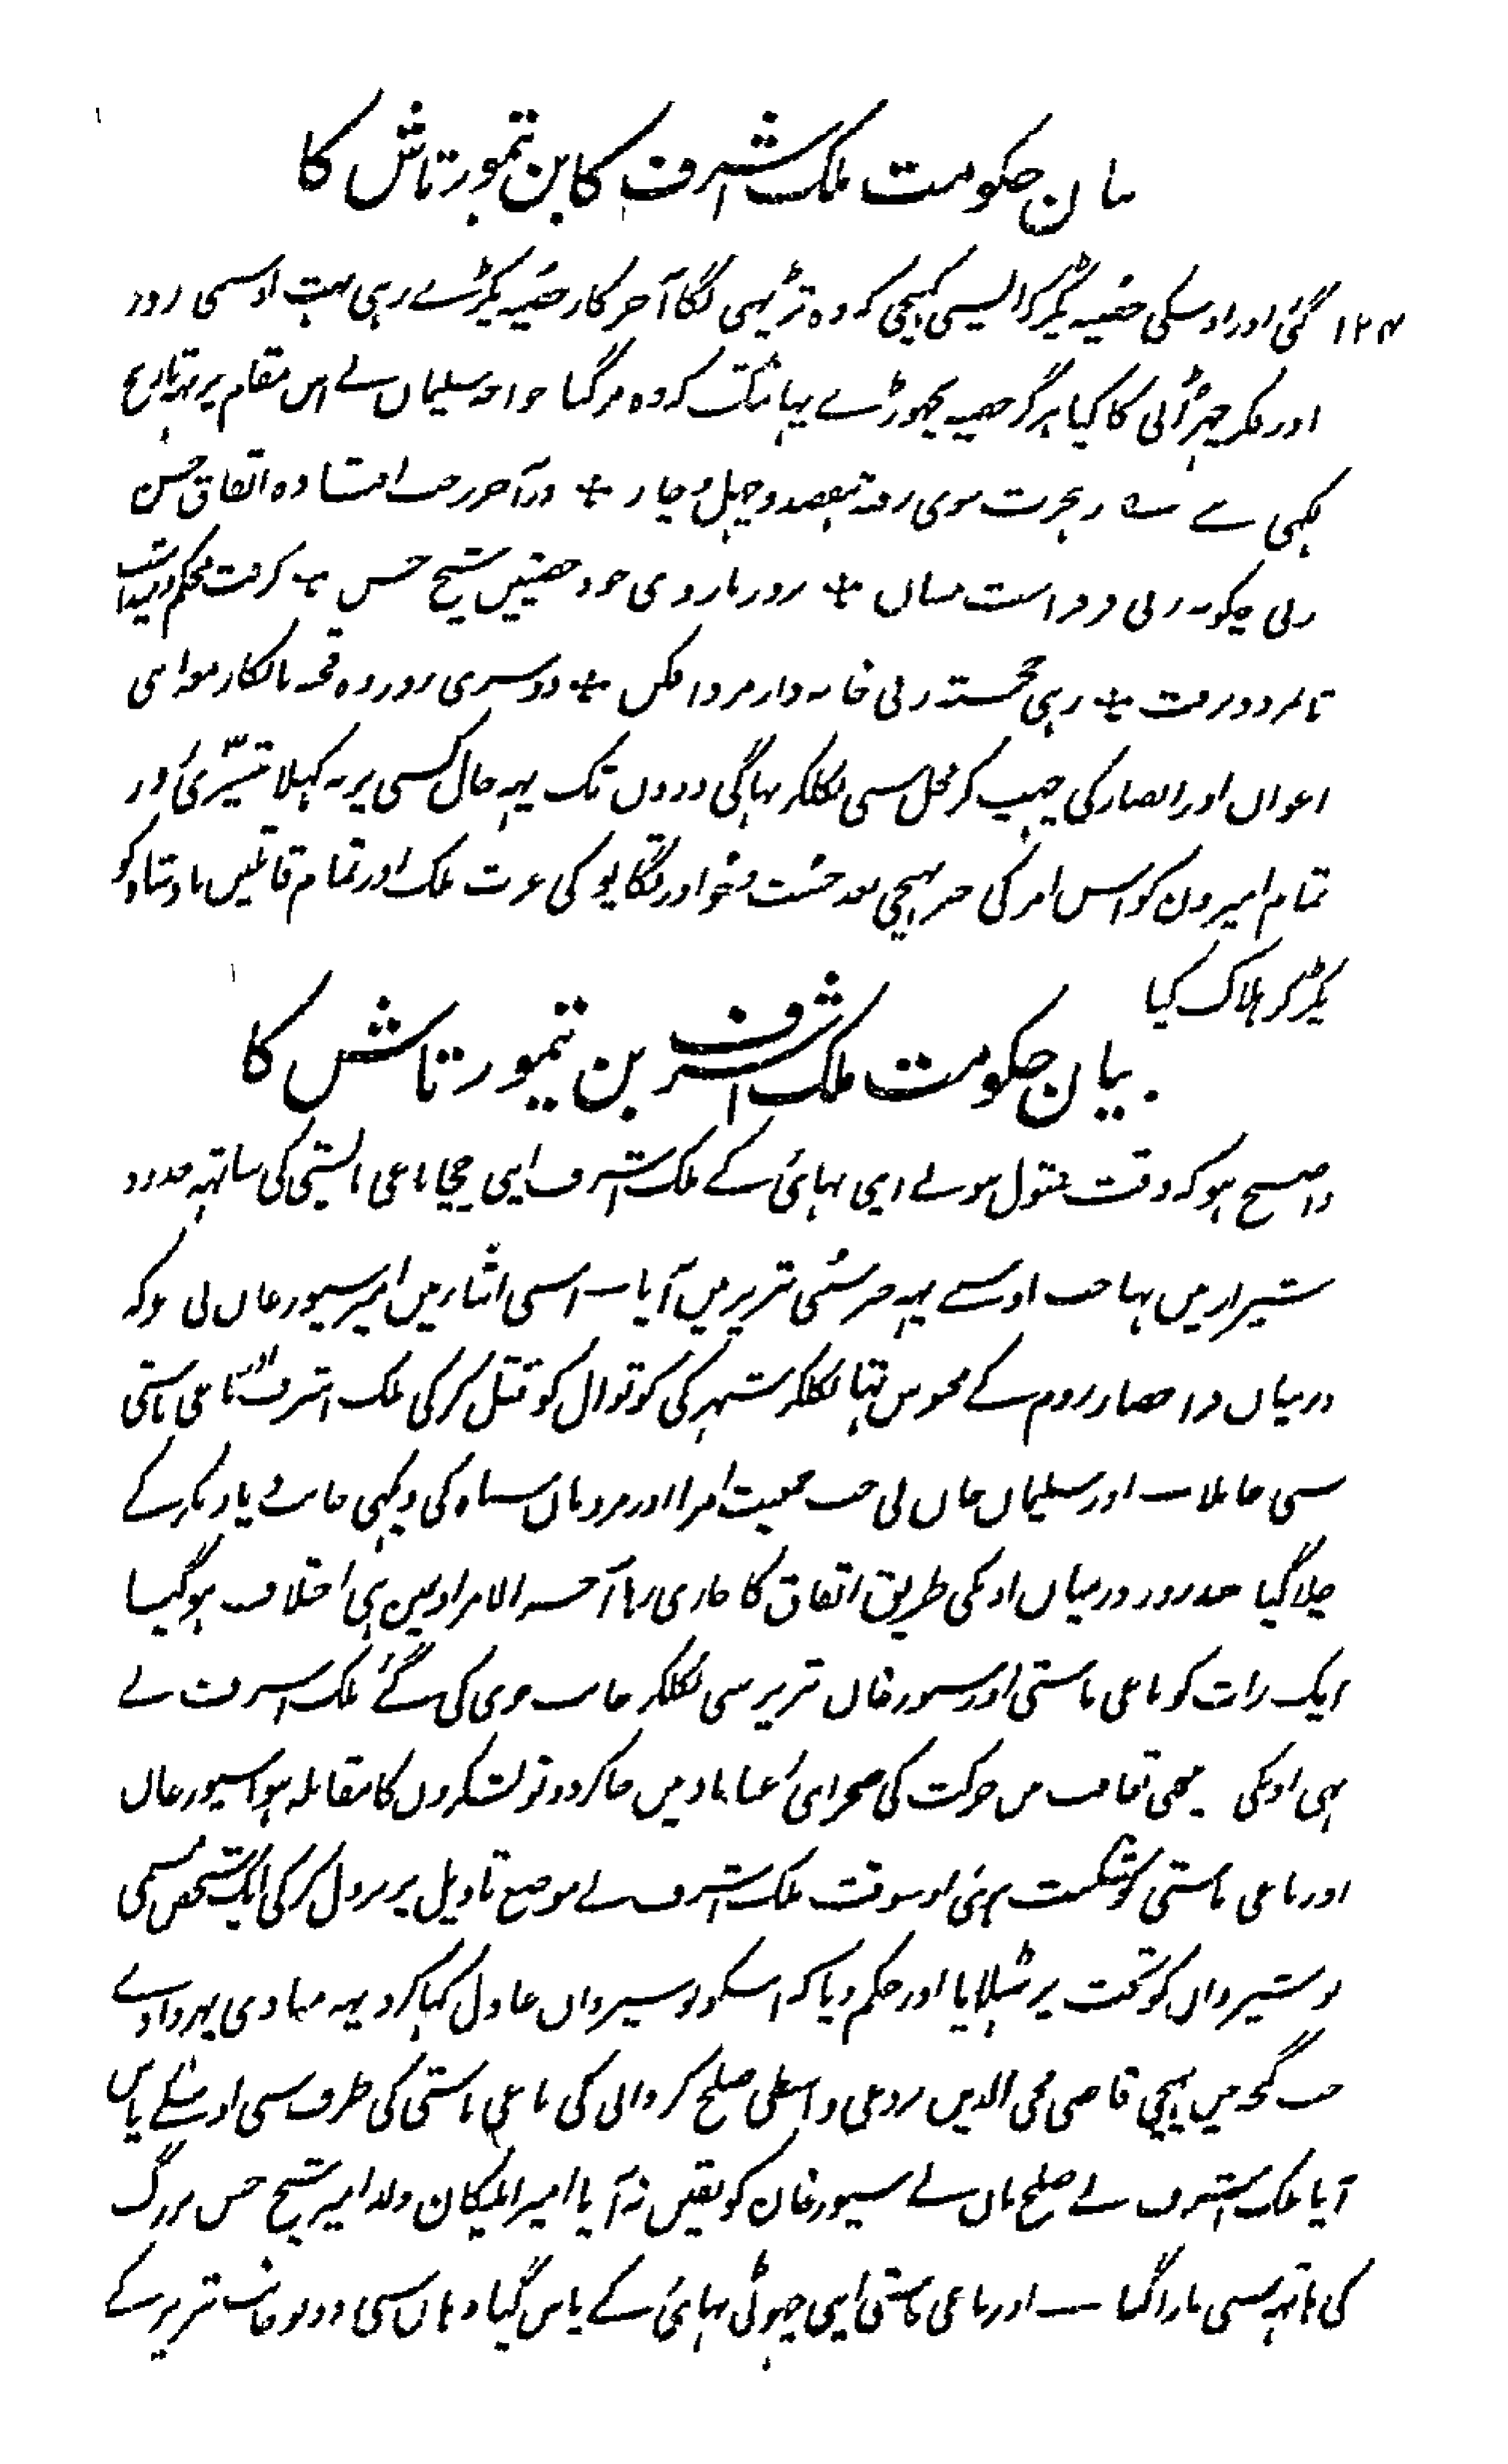 بیان حکومت ملک اشرف کا بن تیمورتاش کا
۱۲۴ گئی اور اوسکی خصیہ پکڑکر ایسی کہینچی کہ وہ تڑپہنی لگا آخر کار خصیہ پکڑے رہی بہت اوسسی زور
اور مکر چہڑانی کا کیا ہرگز خصیہ نچہوڑے یہانتک کہ وہ مرگیا خواجہ سلیمان نے اس مقام پر یہ تاریخ
کہی ہے ز ہجرت نبوی رفتہ ہفصد و چہل و چار ٭ در آخر رجب افتاده اتفاق حسن
زنی چگونہ زنی ٭ بزور بازوی خود خصیتین شیخ حسن ٭ گرفت محکم و میداشت
تا بمرد و برفت ٭ زہی خجستہ زنی خایہ دار مرد افکن ٭ دوسری روز وہ قحبہ نابکار معہ اپنی
اعوان اور انصار کی چہپ کر محل سی نکلکر بہاگی دو دن تک یہہ حال کسی پر نہ کہلا تیسری روز
تمام امیرون کو اس امر کی خبر پہنچی بعد جست و جو اور تگاپو کی عزت ملک اور تمام قاتلین بادشاہ کو
پکڑکر ہلاک کیا
بیان حکومت ملک اشرف بن تیمور تاش کا
واضح ہو کہ وقت مقتول ہونے اپنی بہائی کے ملک اشرف اپنی چچا باغی باستی کی ساتہہ حدود
شیراز مین تہا جب اوسنے یہہ خبر سُنی تبریز مین آیا۔ اسی اثناء مین امیر سیورغان نی جو کہ
درمیان قرا حصار روم کے محبوس تہا نکلکر شہر کی کوتوال کو قتل کرکی ملک اشرف اور باغی باستی
سی جا ملا۔ اور سلیمان خان نی جب جمعیت امرا اور مردمان سپاہ کی دیکہی جانب دیار بکر کے
چلا گیا چند روز درمیان اونکی طریق اتفاق کا جاری رہا آخر الامر اونمین بہی اختلاف ہو گیا
ایک رات کو باغی باستی اور سیورغان تبریز سی نکلکر جانب خوی کی گئے ملک اشرف نے
بہی اونکی پیچہی تعاقب مین حرکت کی صحرای اغاباد مین جاکر دونو لشکرون کا مقابلہ ہوا سیورغان
اور باغی باستی کو شکست ہوئی اوسوقت ملک اشرف نے موضع قادیل پر نزول کرکی ایک شخص مسمی
نوشیروان کو تخت پر بٹہلایا اور حکم دیا کہ اسکو نوشیروان عادل کہا کرو یہہ منادی پہروا دے
جب گنجہ مین پہنچی قاضی محی الدین بردعی واسطی صلح کروانی کی باغی باستی کی طرف سی اوسکے پاس
آیا ملک اشرف نے صلح مان لے سیورغان کو یقین نہ آیا امیر ایلیکان ولد امیر شیخ حسن بزرگ
کی ہاتہہ سی مارا گیا — اور باغی باستی اپنی چہوٹی بہائی کے پاس گیا وہان سی دونو جانب تبریز کے